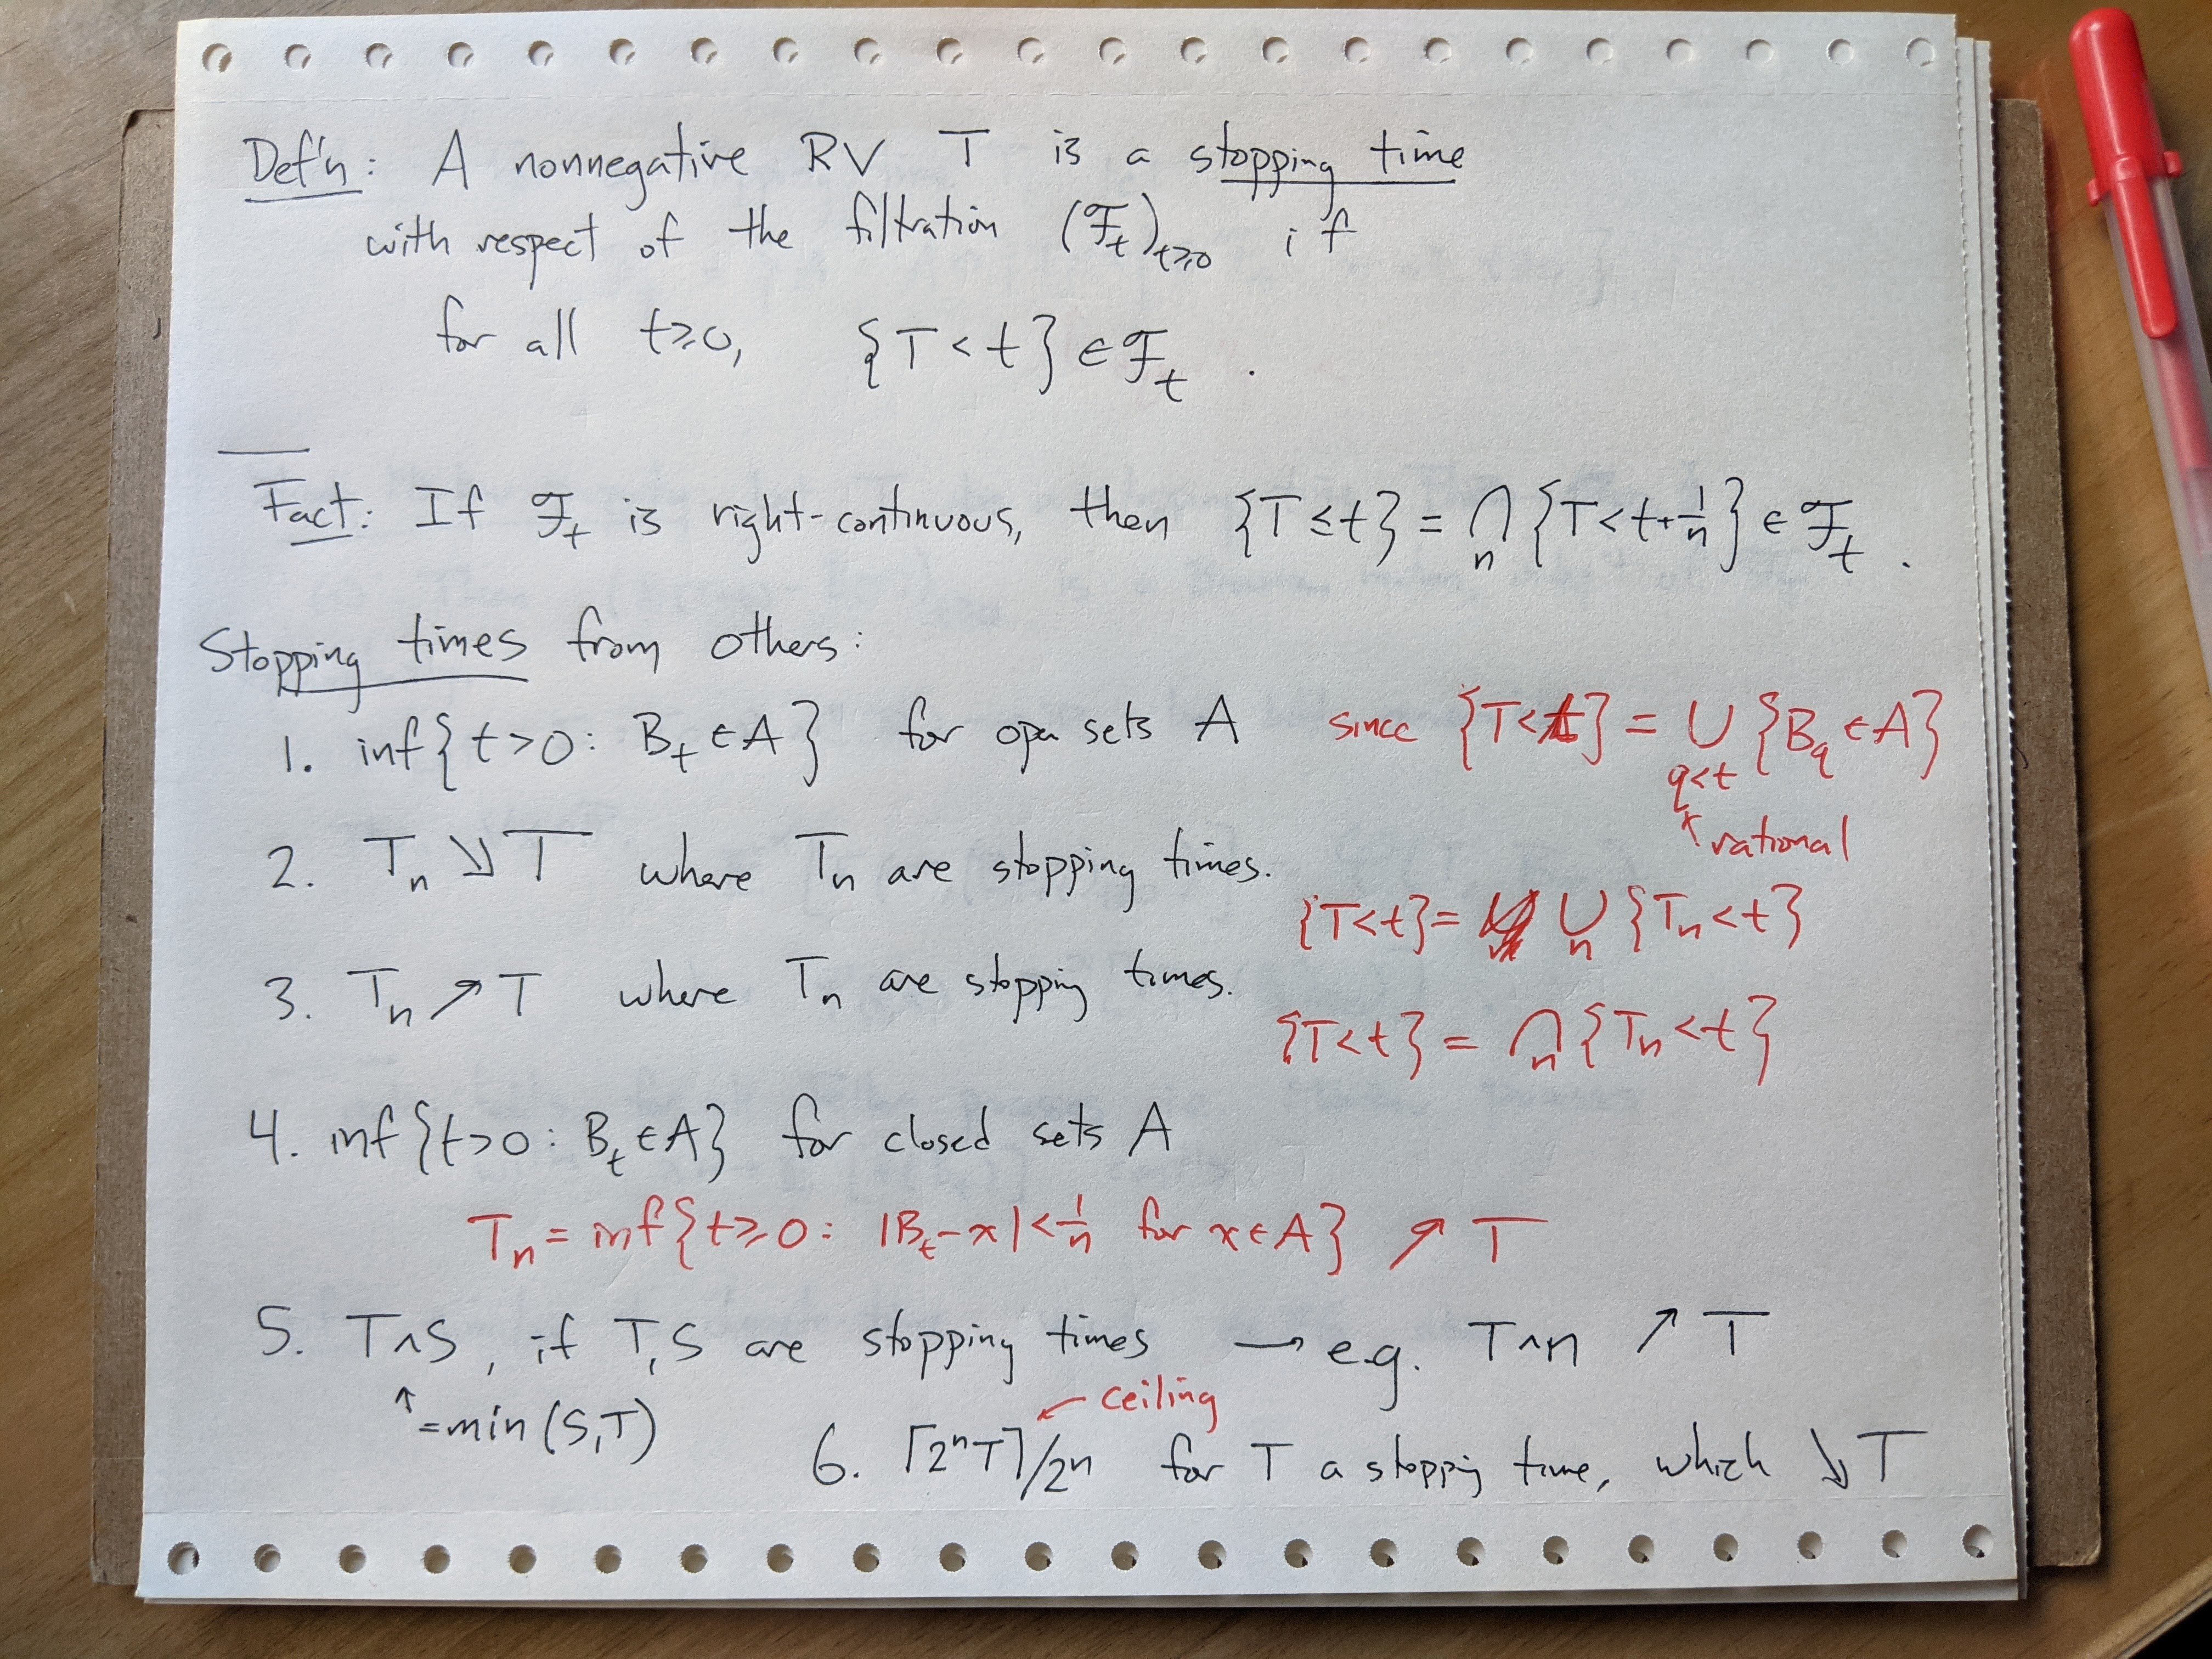 Def'n: A nonnegative RV T is a stopping time
with respect of the filtration (ℱ_t)_{t≥0} if
for all t≥0, {T < t} ∈ ℱ_t .
Fact: If ℱ_t is right-continuous, then {T ≤ t} = ⋂_n {T < t+1/n} ∈ ℱ_t .
Stopping times from others:
1. inf{t>0: B_t ∈ A} for open sets A since {T<t} = ∪_{q<t} {B_q ∈ A}
↑ rational
2. T_n ↘ T where T_n are stopping times.
{T<t} = ∪_n {T_n < t}
3. T_n ↗ T where T_n are stopping times.
{T<t} = ∩_n {T_n < t}
4. inf{t>0: B_t ∈ A} for closed sets A
T_n = inf{t≥0: |B_t - x| < 1/n for x ∈ A} ↗ T
5. T∧S, if T,S are stopping times → e.g. T∧n ↗ T
↑ = min (S,T)
← ceiling
6. ⌈2^n T⌉/2^n for T a stopping time, which ↘ T